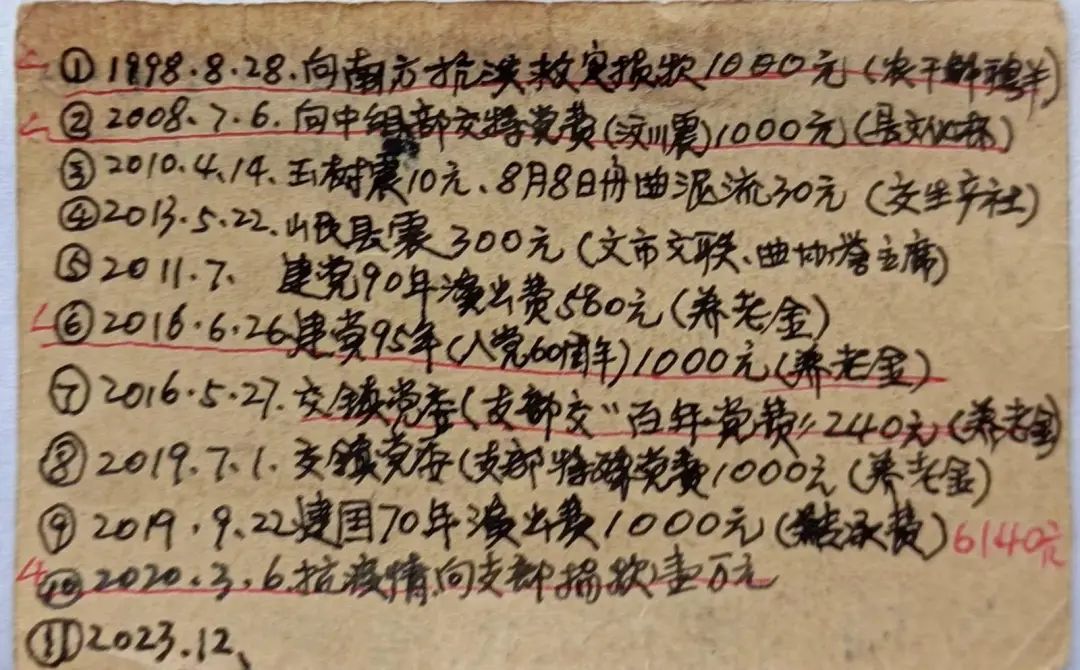 ① 1998.8.28.向南方抗洪救灾捐款1000元(农干
② 2008.7.6.向中组部交特党费(汶川震)1000元(县文化
③ 2010.4.14.玉树震10元、8月8日舟曲泥流30元(交生产社)
④ 2013.5.22.岷县震300元(文市文联、曲协誉主席)
⑤ 2011.7、建党90年演出费580元(养老金)
⑥ 2016.6.26建党95年(入党60周年)1000元(养老金)
⑦ 2016.5.27.交镇党委(支部交"百年党费"240元(养老金)
⑧ 2019.7.1.交镇党委(支部特殊党费1000元(养老金)
⑨ 2019.9.22建国70年演出费1000元(承费)6140元
⑩ 2020.3.6.抗疫情向支部捐款壹万元
⑪ 2023.12、